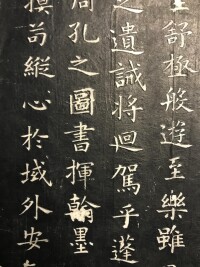 舒極般遊至樂雖
之遺誡將迴駕乎蓬
周孔之圖書揮翰墨
摸苟縱心於域外安